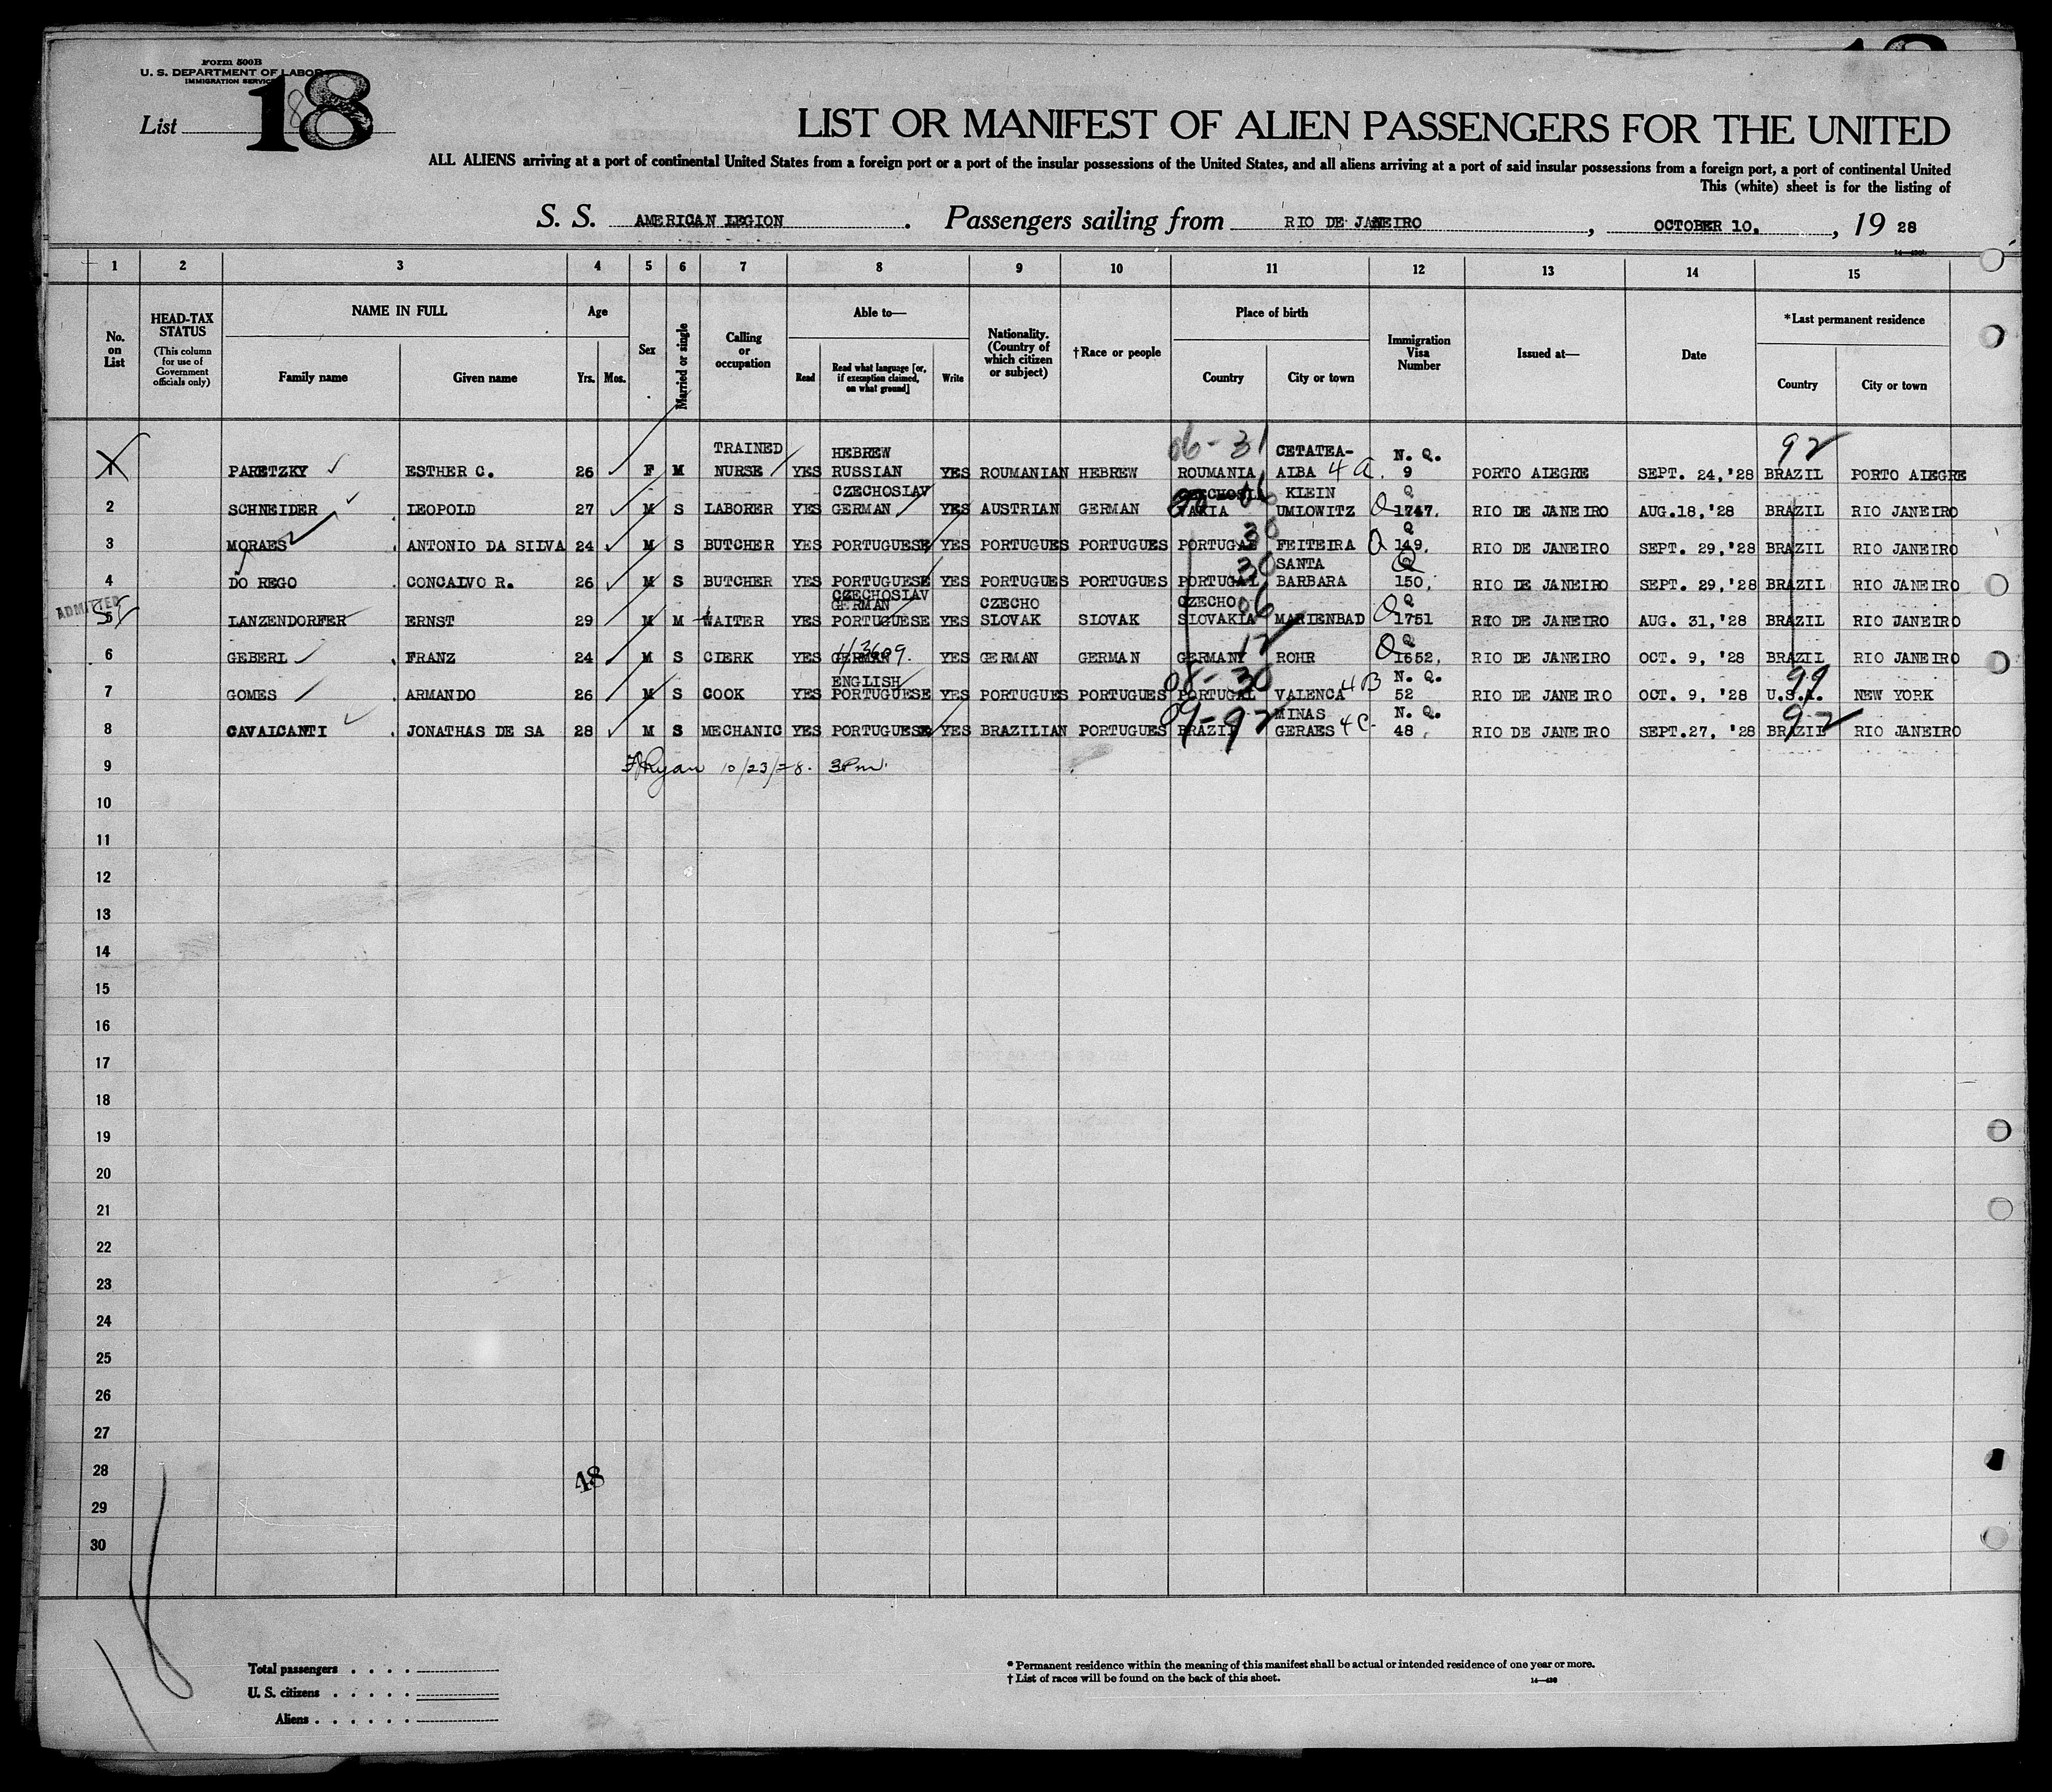 Form 500B
U. S. DEPARTMENT OF LABOR
IMMIGRATION SERVICE
List 18
LIST OR MANIFEST OF ALIEN PASSENGERS FOR THE UNITED
ALL ALIENS arriving at a port of continental United States from a foreign port or a port of the insular possessions of the United States, and all aliens arriving at a port of said insular possessions from a foreign port, a port of continental United
This (white) sheet is for the listing of
S. S. AMERICAN LEGION. Passengers sailing from RIO DE JANEIRO, OCTOBER 10., 19 28
1 2 3 4 5 6 7 8 9 10 11 12 13 14 15
No. on List
HEAD-TAX STATUS
(This column for use of Government officials only)
NAME IN FULL
Family name
Given name
Age
Yrs. Mos.
Sex
Married or single
Calling or occupation
Able to—
Read
Read what language [or, if exemption claimed, on what ground]
Write
Nationality. (Country of which citizen or subject)
†Race or people
Place of birth
Country
City or town
Immigration Visa Number
Issued at—
Date
*Last permanent residence
Country
City or town
06-31 92
TRAINED HEBREW CETATEA- N. Q.
1 PARETZKY ESTHER C. 26 F M NURSE YES RUSSIAN YES ROUMANIAN HEBREW ROUMANIA ALBA 4a. 9 PORTO ALEGRE SEPT. 24,'28 BRAZIL PORTO ALEGRE
CZECHOSLAV CZECHOSL 06 KLEIN Q
2 SCHNEIDER LEOPOLD 27 M S LABORER YES GERMAN YES AUSTRIAN GERMAN VAKIA UMLOWITZ Q 1747. RIO DE JANEIRO AUG.18,'28 BRAZIL RIO JANEIRO
30 Q
3 MORAES ANTONIO DA SILVA 24 M S BUTCHER YES PORTUGUESE YES PORTUGUES PORTUGUES PORTUGAL FEITEIRA Q 149. RIO DE JANEIRO SEPT. 29,'28 BRAZIL RIO JANEIRO
30 SANTA Q
4 DO REGO CONCALVO R. 26 M S BUTCHER YES PORTUGUESE YES PORTUGUES PORTUGUES PORTUGAL BARBARA 150. RIO DE JANEIRO SEPT. 29,'28 BRAZIL RIO JANEIRO
CZECHOSLAV
ADMITTED GERMAN CZECHO CZECHO 06 Q
5 LANZENDORFER ERNST 29 M M WAITER YES PORTUGUESE YES SLOVAK SLOVAK SLOVAKIA MARIENBAD Q 1751 RIO DE JANEIRO AUG. 31,'28 BRAZIL RIO JANEIRO
12 Q
6 GEBERL FRANZ 24 M S CLERK YES GERMAN YES GERMAN GERMAN GERMANY ROHR Q 1652. RIO DE JANEIRO OCT. 9, '28 BRAZIL RIO JANEIRO
ENGLISH 08-30 N. Q. 99
7 GOMES ARMANDO 26 M S COOK YES PORTUGUESE YES PORTUGUES PORTUGUES PORTUGAL VALENCA 4B 52 RIO DE JANEIRO OCT. 9, '28 U.S.A. NEW YORK
09-92 MINAS N. Q. 92
8 CAVALCANTI JONATHAS DE SA 28 M S MECHANIC YES PORTUGUESE YES BRAZILIAN PORTUGUES BRAZIL GERAES 4C 48 RIO DE JANEIRO SEPT.27, '28 BRAZIL RIO JANEIRO
9 Ryan 10/23/28. 3 Pm.
10
11
12
13
14
15
16
17
18
19
20
21
22
23
24
25
26
27
28 48
29
30
Total passengers . . . .
U. S. citizens . . . . .
Aliens . . . . . .
* Permanent residence within the meaning of this manifest shall be actual or intended residence of one year or more.
† List of races will be found on the back of this sheet.